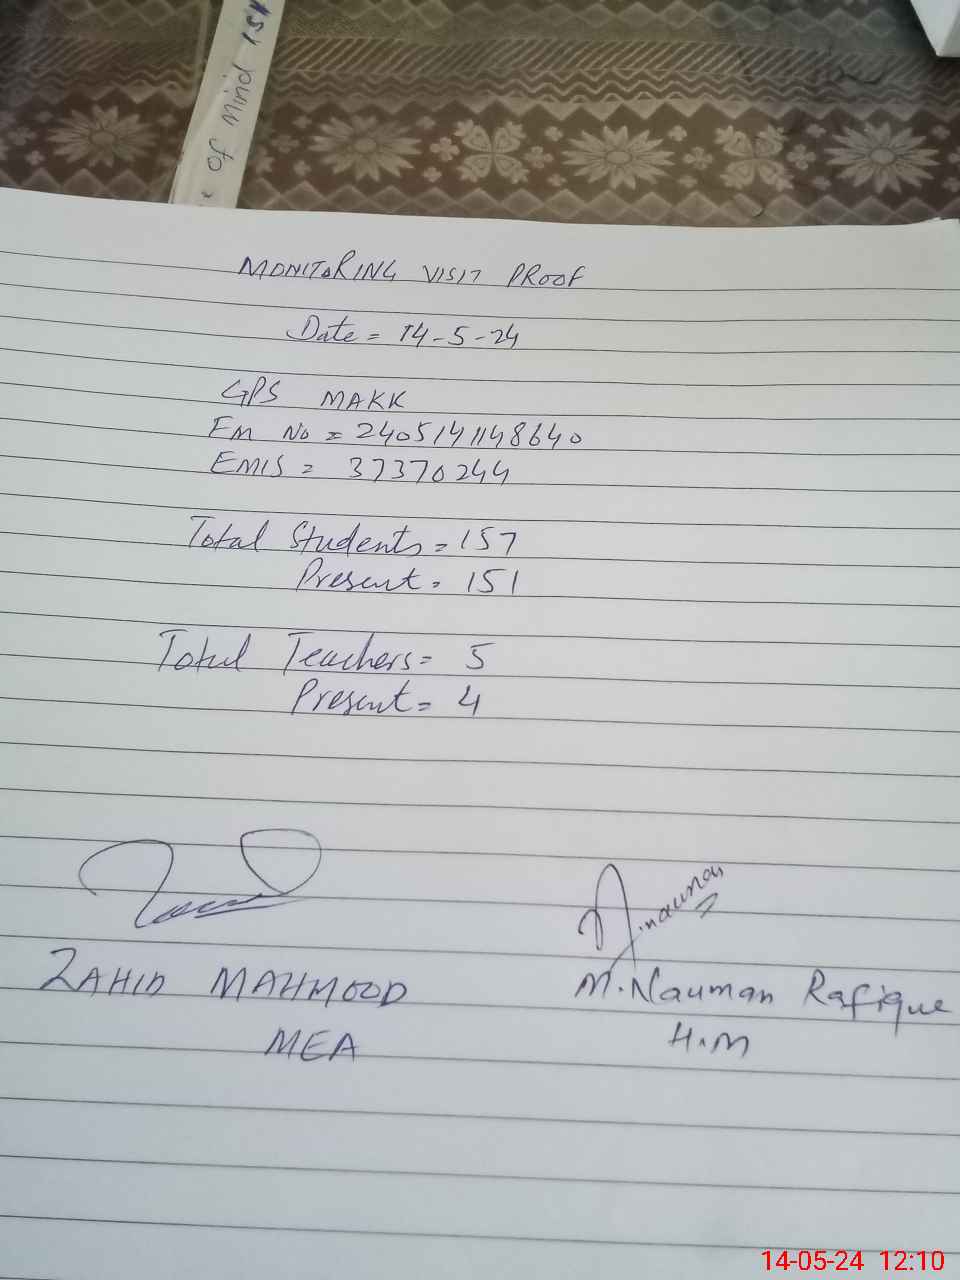 of mind
MONITORING VISIT PROOF
Date = 14-5-24
GPS MAKK
EM No = 2405141148640
EMIS = 37370244
Total Students = 157
Present = 151
Total Teachers = 5
Present = 4
M.nauman
ZAHID MAHMOOD
M.Nauman Rafique
MEA
H.M
14-05-24 12:10